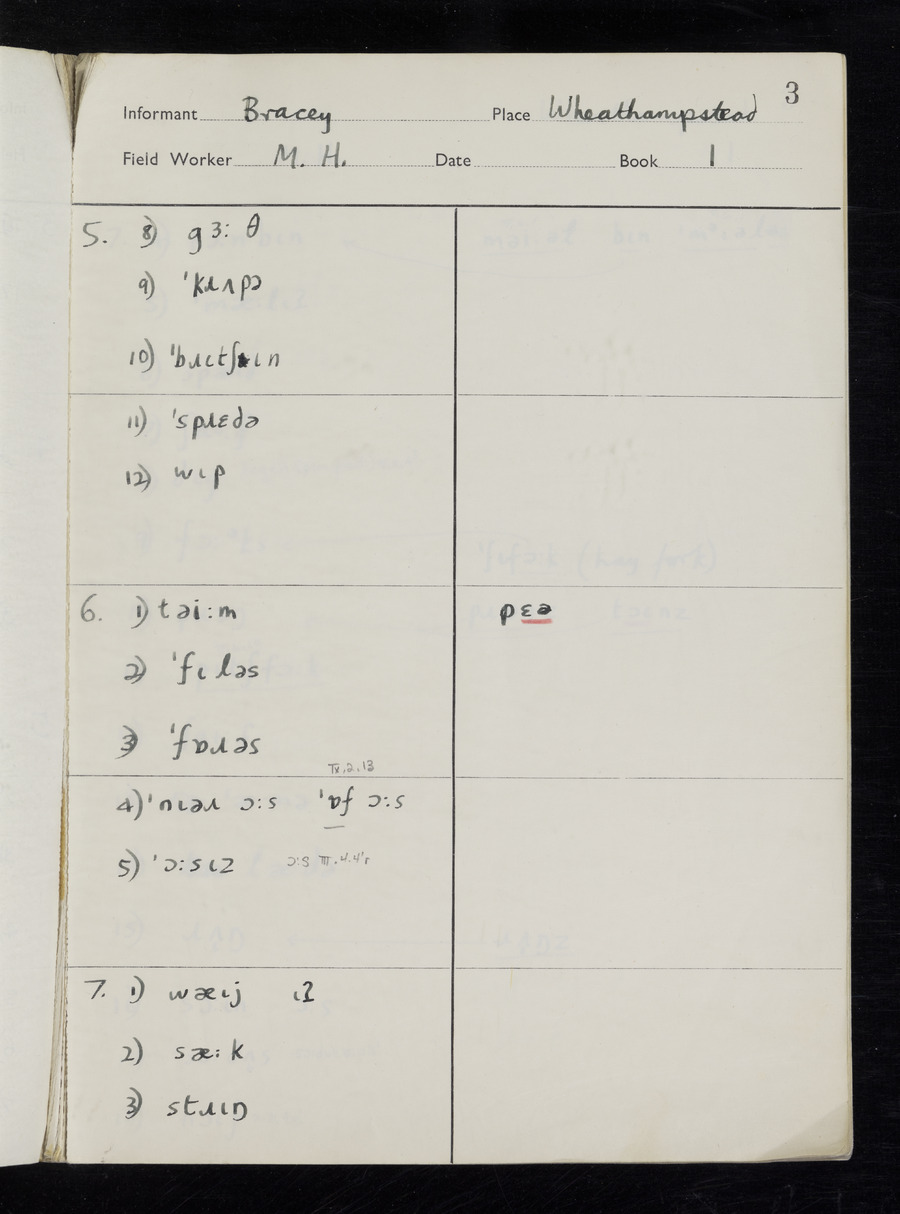 3
Informant Bracey Place Wheathampstead
Field Worker M. H. Date Book 1
5. 8) gɜ: θ
9) 'kɹʌpə
10) 'bɹɪtʃɪn
11) 'spɹɛdə
12) wɪp
6. 1) təi:m pɛə
2) 'fɪləs
3) 'fɒɹəs
IX.2.13
4) 'nɪəɹ ɔ:s 'ɒf ɔ:s
5) 'ɔ:sɪz ɔ:s III.4.4'r
7. 1) wæɪj
2) sæ:k
3) stɹɪŋ